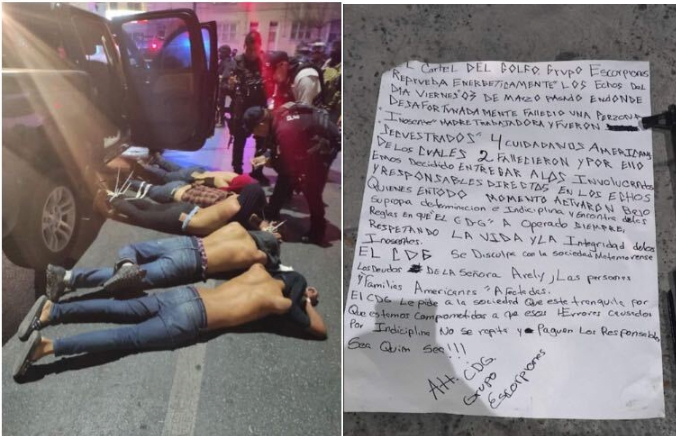 EL CARTEL DEL GOLFO. GRUPO ESCORPIONES
REPRUEBA ENERGETICAMENTE" LOS ECHOS DEL
DIA VIERNES" 03 DE MARZO PASADO ENDONDE
DESAFORTUNADAMENTE FALLECIO UNA PERZONA
INOSENTE" MADRE TRABAJADORA Y FUERON
SECUESTRADOS" 4 CUIDADANOS AMERICANOS
DE LOS CUALES 2 FALLECIERON Y POR ELLO
EMOS DECIDIDO ENTREGAR A LOS INVOLUCRADOS
Y RESPONSABLES DIRECTOS EN LOS ECHOS
QUIENES EN TODO MOMENTO ACTUARON BAJO
SU PROPIA DETERMINACION E INDICIPLINA Y ENCONTRA DE LAS
REGLAS EN QUE "EL CDG" A OPERADO SIEMPRE.
RESPETANDO LA VIDA Y LA INTEGRIDAD DE LOS
INOSENTES.
EL CDG SE DISCULPA CON LA SOCIEDAD MATAMORENSE
LOS DEUDOS DE LA SEÑORA ARELY, LAS PERSONAS
Y FAMILIAS AMERICANAS" AFECTADAS.
EL CDG LE PIDE A LA SOCIEDAD QUE ESTE TRANQUILA POR
QUE ESTAMOS COMPROMETIDOS A QUE ESOS ERRORES CAUSADOS
POR INDICIPLINA NO SE REPITA Y PAGUEN LOS RESPONSABLES
SEA QUIM SEE!!!
ATT. CDG
GRUPO
ESCORPIONES